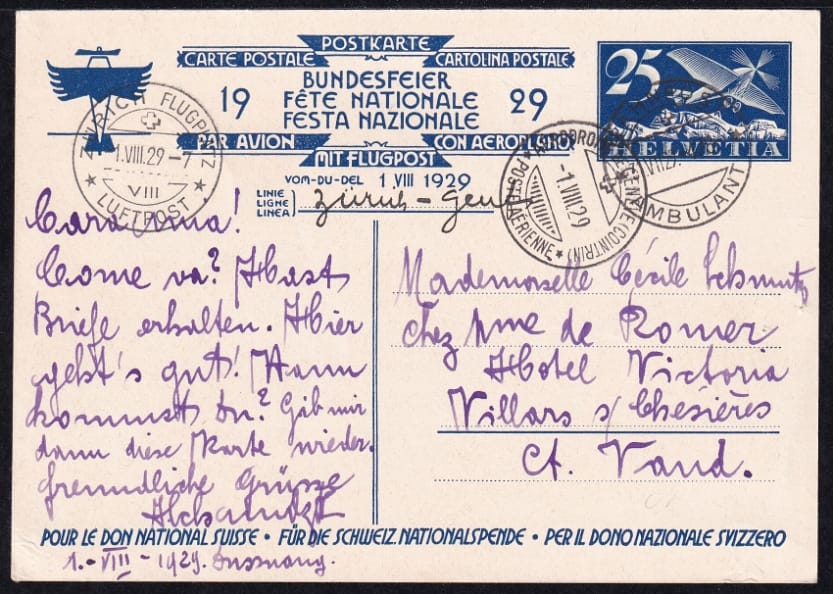 POSTKARTE
CARTE POSTALE CARTOLINA POSTALE
BUNDESFEIER
19 FÊTE NATIONALE 29
FESTA NAZIONALE
PAR AVION CON AEROPLANO
MIT FLUGPOST
VOM-DU-DEL 1.VIII 1929
LINIE
LIGNE
LINEA
Zürich - Genf
25
HELVETIA
ZÜRICH FLUGPLATZ
1.VIII.29-7
VIII
LUFTPOST
AÉRODROME GENÈVE (COINTRIN)
-1.VIII.29
POSTE AÉRIENNE
AMBULANT
Cara
Come va? Hast
Briefe erhalten. Hier
geht's gut! Wann
kommst du? Gib mir
dann diese Karte wieder.
freundliche Grüsse
Mademoiselle Cécile Schmutz
chez Mme de Romer
Hotel Victoria
Villars s/Chesières
Ct. Vaud.
POUR LE DON NATIONAL SUISSE • FÜR DIE SCHWEIZ. NATIONALSPENDE • PER IL DONO NAZIONALE SVIZZERO
1.-VIII-1929.